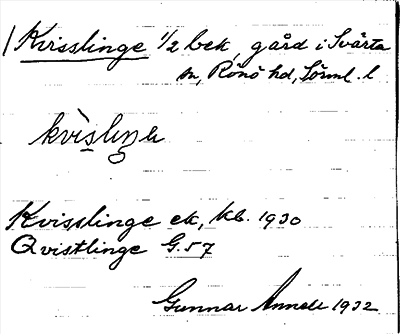 Kvisslinge 1/2 bek, gård i Svärta
sn, Rönö hd, Sörml. l
kvìsliŋe
Kvisslinge ek, kb. 1930
Qvistlinge G.57
Gunnar 1932